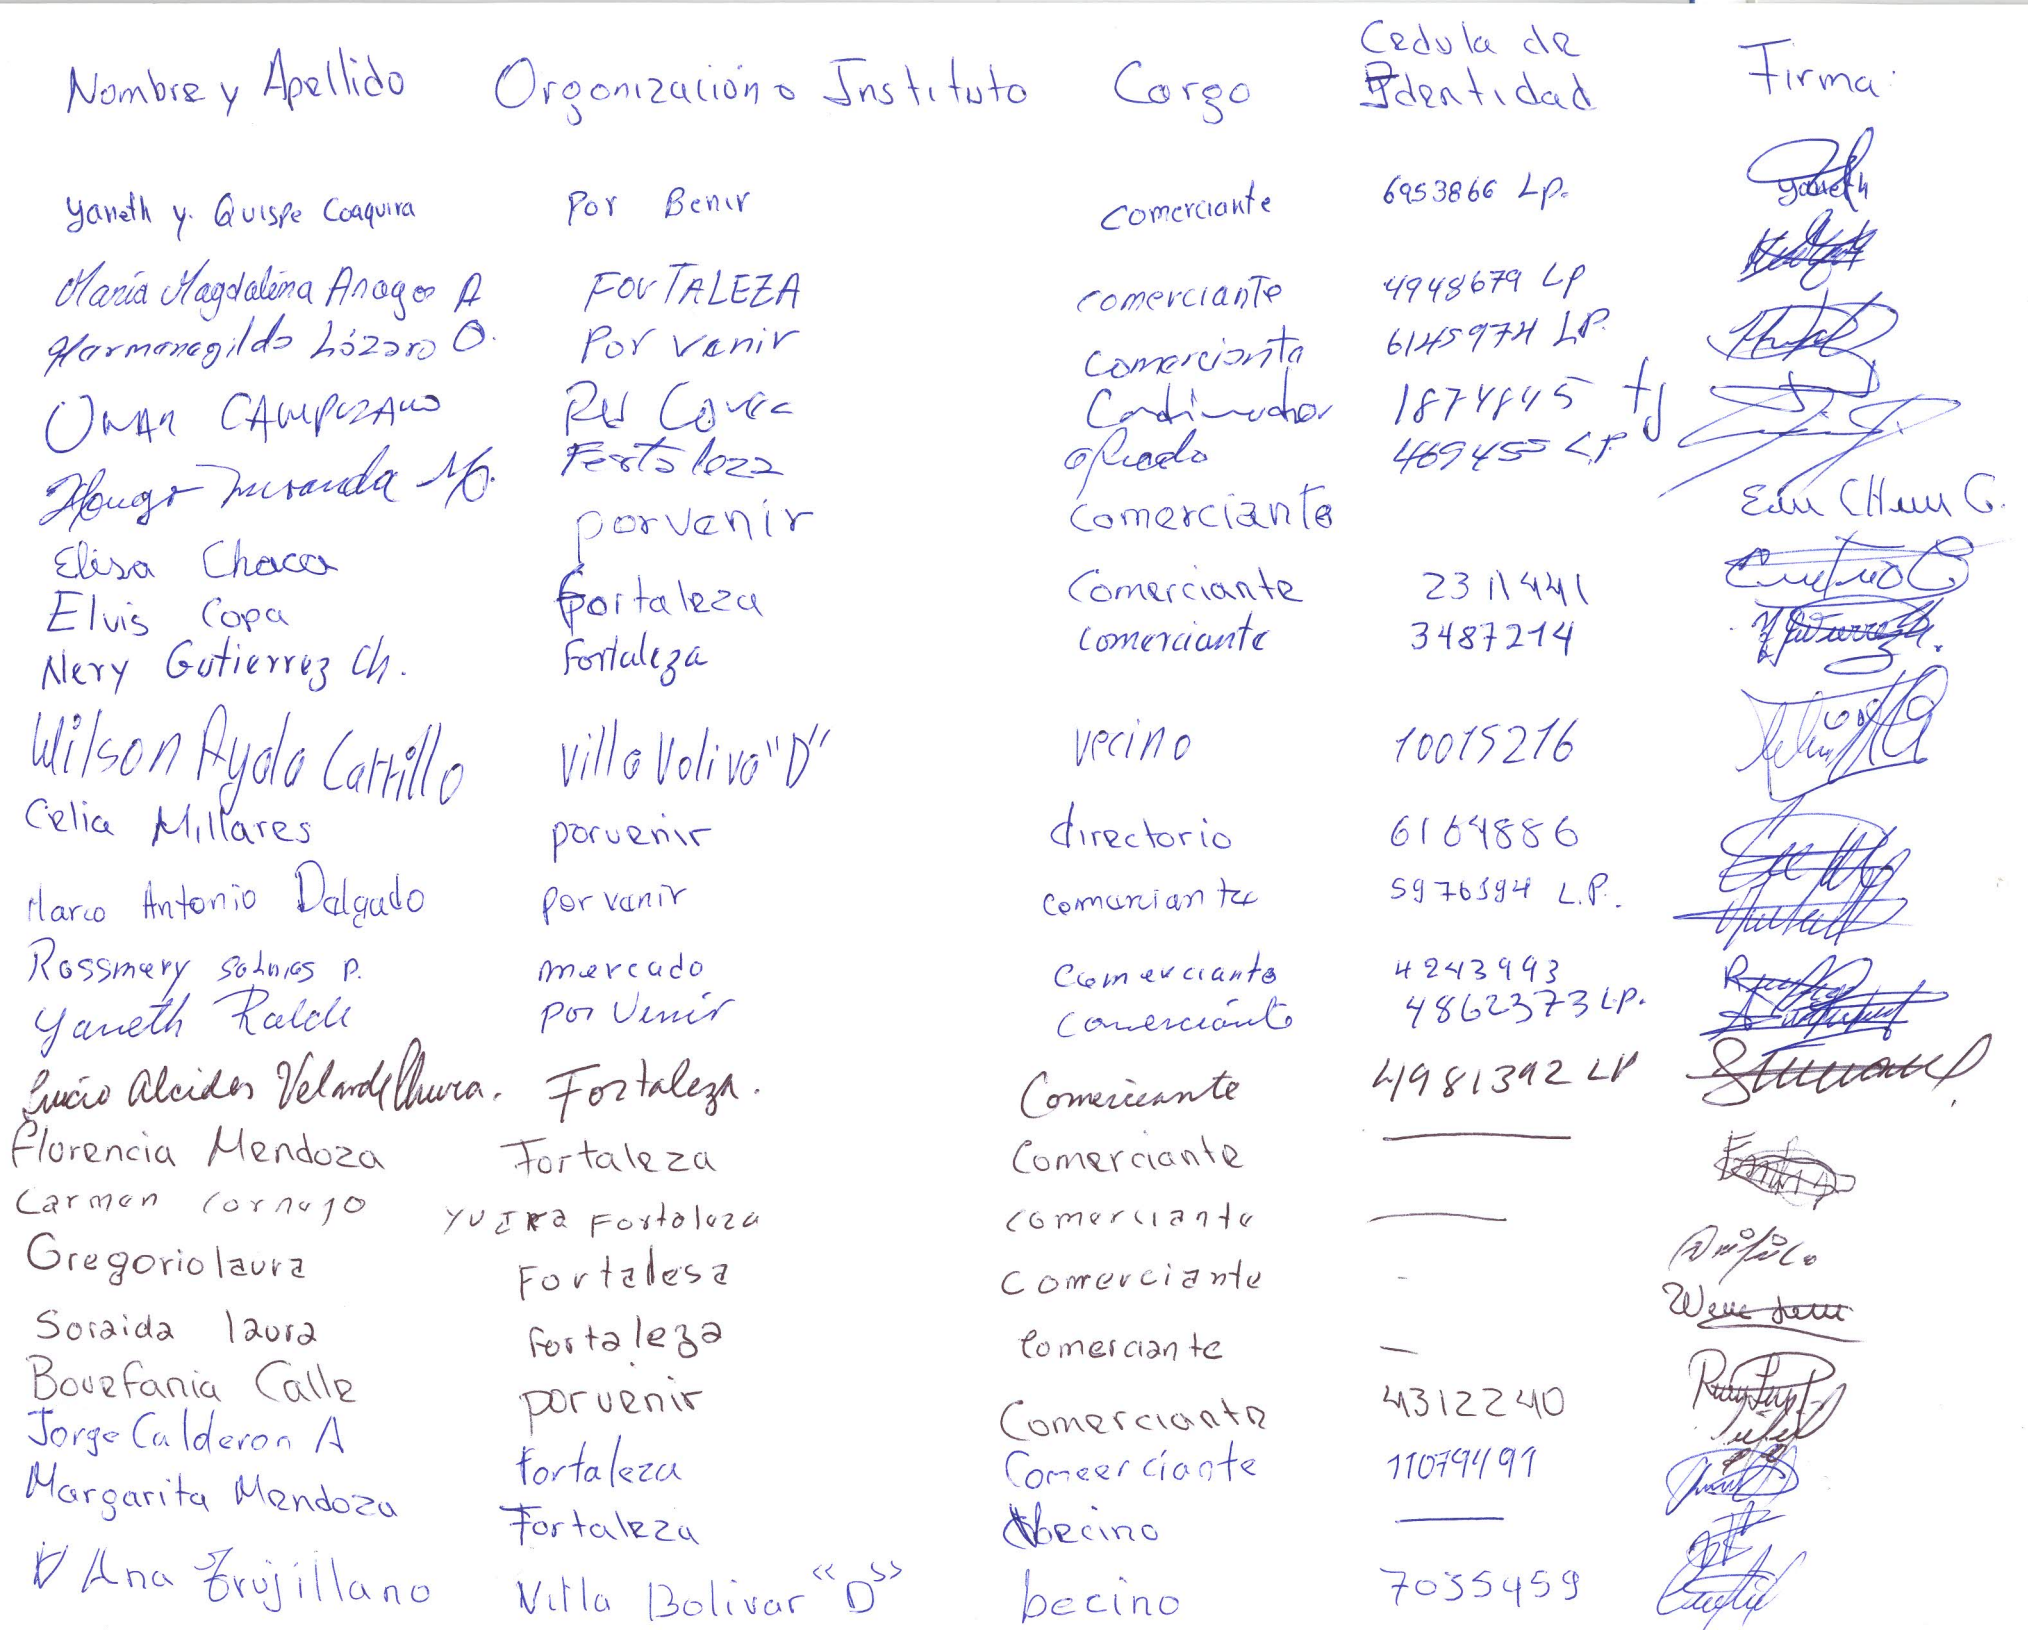 Nombre y Apellido Organización o Instituto Cargo Cedula de Identidad Firma:
Yaneth y. Quispe Coaquira Por Benir comerciante 6953866 LP.
Maria Magdalena A FORTALEZA comerciante 4948679 LP
Hermenegildo Lázaro O. Por venir Comerciante 6145974 LP.
Omar CAMPUZANO Red Coordinador 1874845 tj
Hugo Miranda M. Fortaleza 469455 LP
Elisa Chaca porvenir comerciante
Elvis Copa Fortaleza Comerciante 2311441
Nery Gutierrez Ch. Fortaleza comerciante 3487214
Wilson Ayala Carrillo Villa Volivo "D" vecino 10015216
Celia Millares porvenir directorio 6164886
Marco Antonio Delgado por venir comerciante 5976394 L.P.
Rossmery Salinas P. mercado Comerciante 4243993
Yaneth Ralde Por Venir Comerciante 4862373 LP.
Lucio Alcides Velarde Chura. Fortaleza. Comerciante 4981392 LP
Florencia Mendoza Fortaleza Comerciante
Carmen Cornejo Fortaleza comerciante
Gregorio laura Fortalesa Comerciante
Soraida laura Fortaleza Comerciante
Bouefania Calle porvenir Comerciante 4312240
Jorge Calderon A Fortaleza Comeerciante 11079499
Margarita Mendoza Fortaleza becino
Ana Trujillano Villa Bolivar "D" becino 7035459